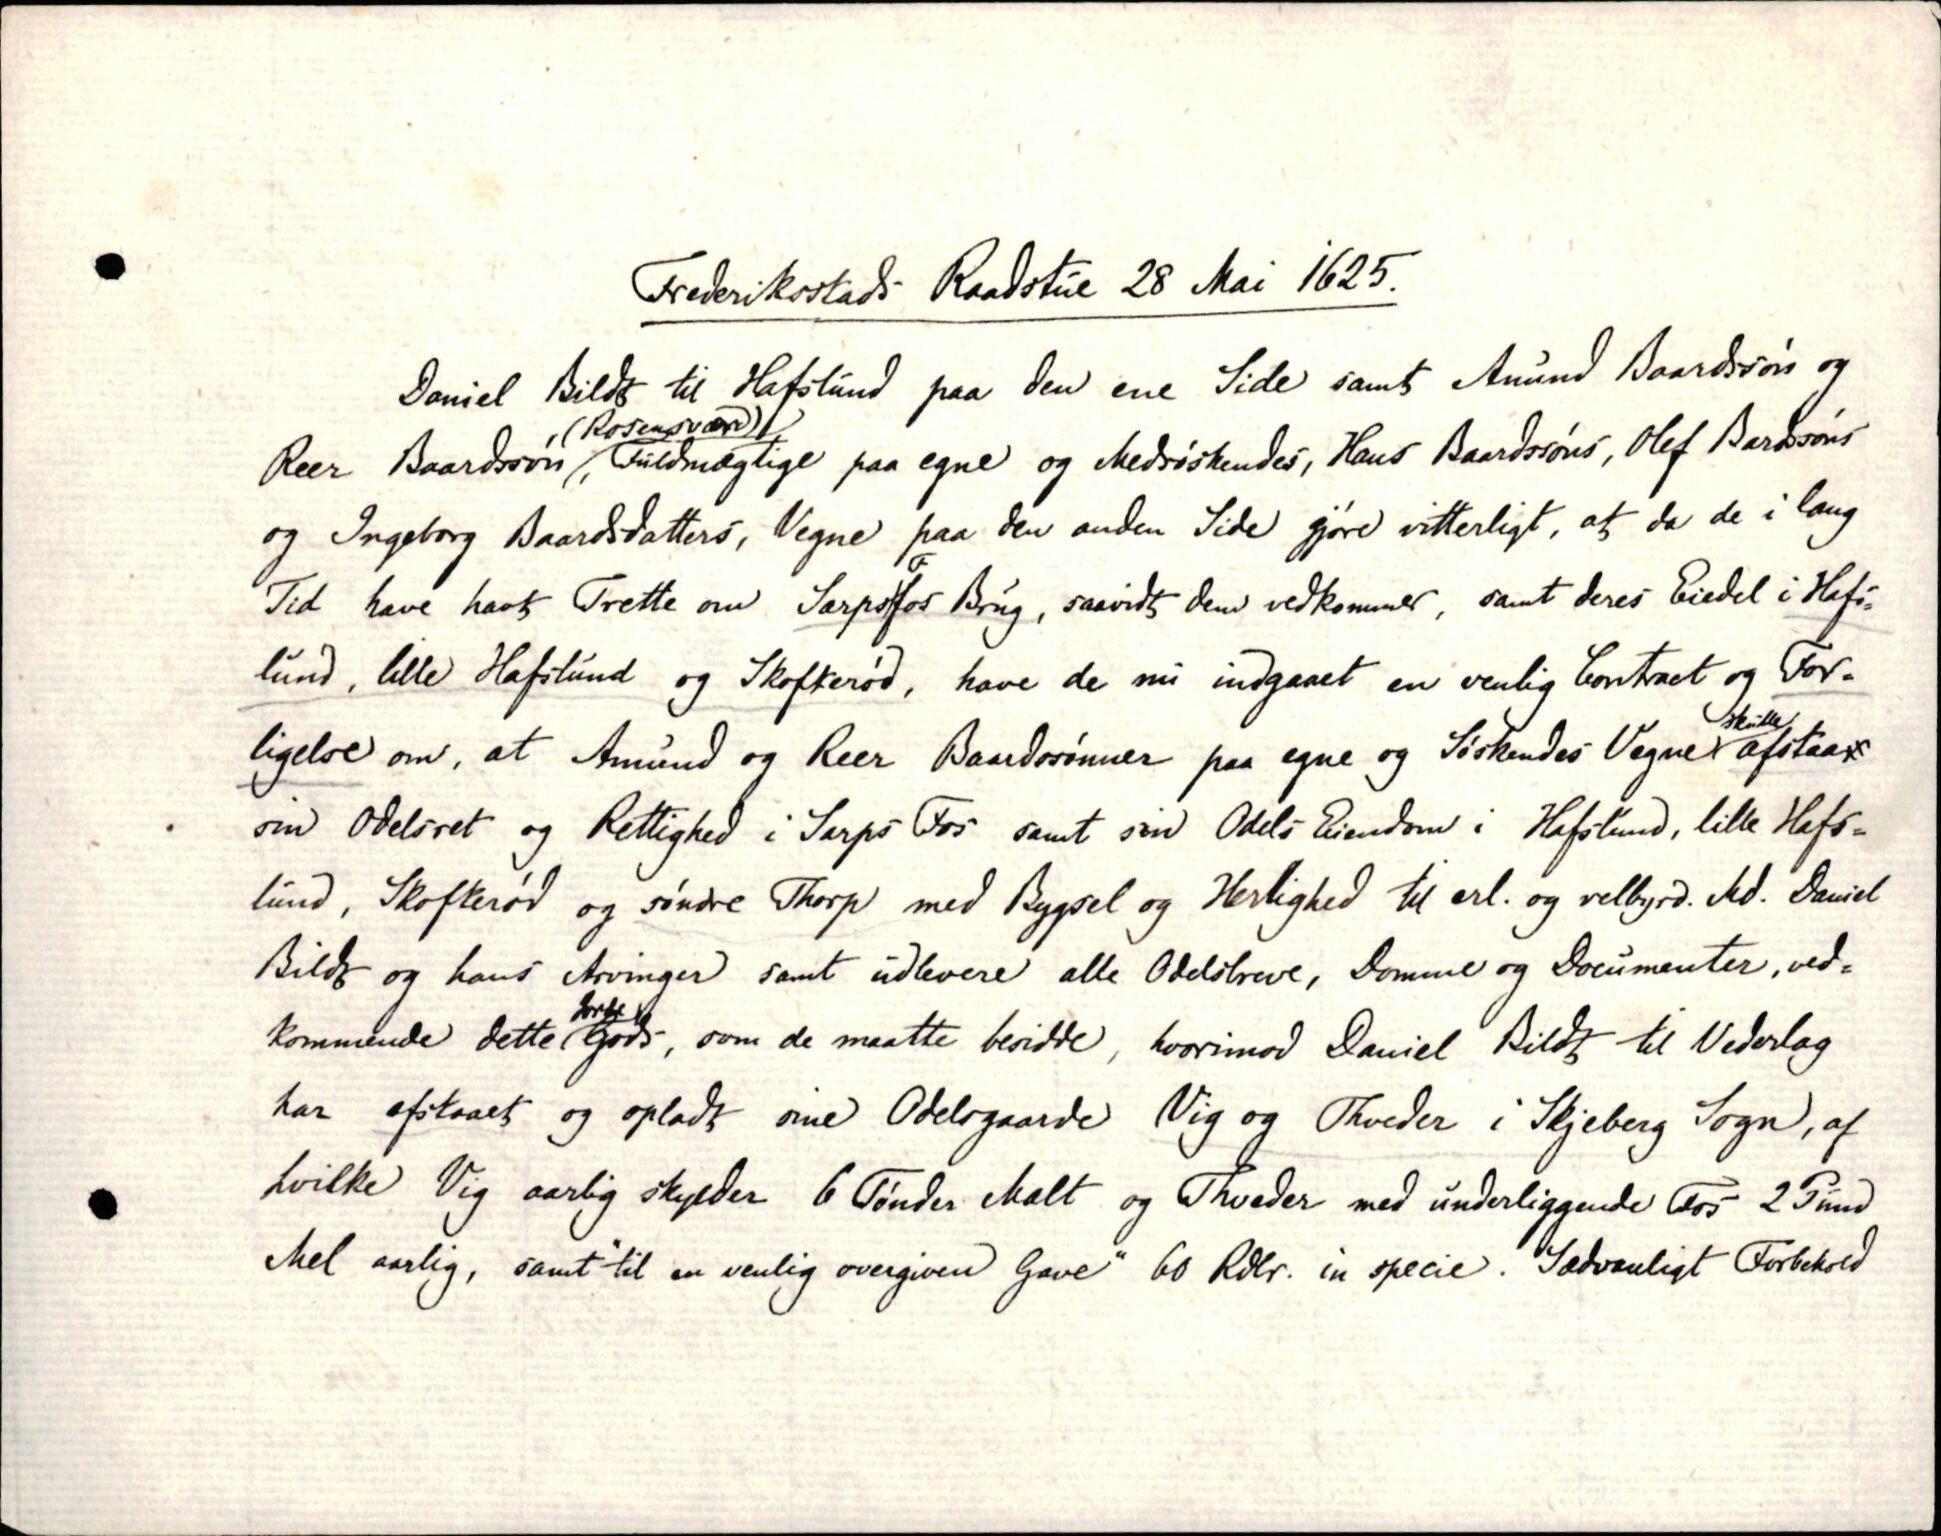 Frederiksstads Raadstue 28 Mai 1625.
Daniel Bildt til Hafslund paa den ene Side samt Amund Baardssøn og
Reer Baardssøn (Rosensværd), Fuldmægtige paa egne og Medsøskendes, Hans Baardssøns, Olef Bardssøns
og Ingeborg Baardsdatters, Vegne paa den anden Side gjøre vitterligt, at da de i lang
Tid have havt Trette om Sarps Fos Brug, saavidt dem vedkommer, samt deres Eiedel i Hafs-
lund, lille Hafslund og Skofterød, have de nu indgaaet en venlig Contract og For-
ligelse om, at Amund og Reer Baardssønner paa egne og Søskendes Vegne skulle afstaa
sin Odelsret og Rettighed i Sarps Fos samt sin Odels Eiendom i Hafslund, lille Hafs-
lund, Skofterød og søndre Thorp med Bygsel og Herlighed til erl. og velbyrd. Md. Daniel
Bildt og hans Arvinger samt udlevere alle Odelsbreve, Domme og Documenter, ved-
kommende dette Gods, som de maatte besidde, hvorimod Daniel Bildt til Vederlag
har afstaaet og opladt sine Odelsgaarde Vig og Thveder i Skjeberg Sogn, af
hvilke Vig aarlig skylder 6 Tønder Malt og Thveder med underliggende Fos 2 Pund
Mel aarlig, samt "til en venlig overgiven Gave" 60 Rdlr. in specie. Sædvanligt Forbehold